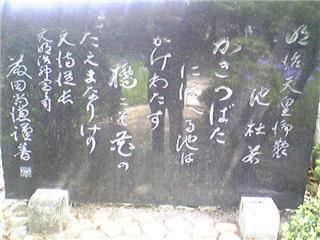 明治天皇御製
池杜若
かきつばた
にほへる池は
かけわたす
橋こそ花の
たえまなりけり
謹書